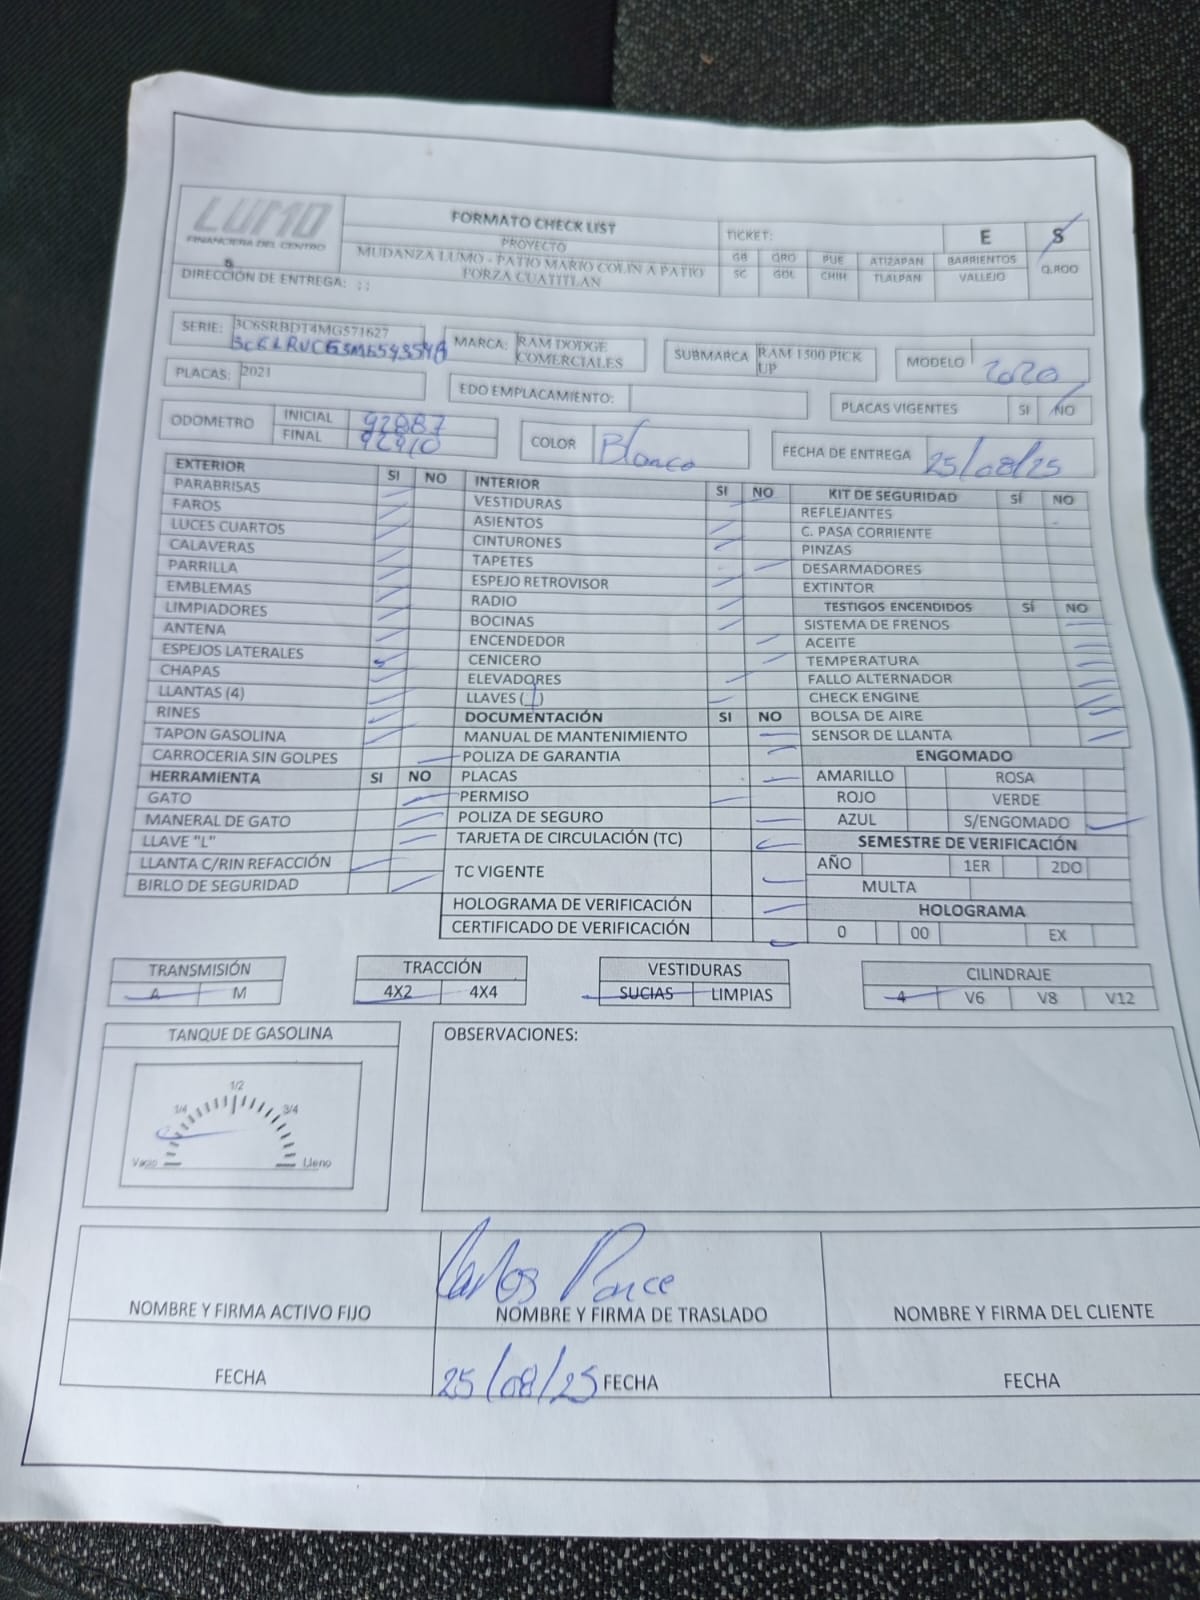 LUMO
FINANCIERA DEL CENTRO
FORMATO CHECK LIST
PROYECTO
MUDANZA LUMO - PATIO MARIO COLIN A PATIO
FORZA CUATITLAN
TICKET: E S
GB QRO PUE ATIZAPAN BARRIENTOS Q.ROO
SC GDL CHIH TLALPAN VALLEJO
DIRECCIÓN DE ENTREGA: ; ;
SERIE: 3C6SRBDT4MG571627
MARCA: RAM DODGE COMERCIALES
SUBMARCA RAM 1500 PICK UP
MODELO 2020
PLACAS: 2021
EDO EMPLACAMIENTO:
PLACAS VIGENTES SI NO
ODOMETRO INICIAL 92887
FINAL 92910
COLOR Blanco
FECHA DE ENTREGA 25/08/25
EXTERIOR SI NO
PARABRISAS
FAROS
LUCES CUARTOS
CALAVERAS
PARRILLA
EMBLEMAS
LIMPIADORES
ANTENA
ESPEJOS LATERALES
CHAPAS
LLANTAS (4)
RINES
TAPON GASOLINA
CARROCERIA SIN GOLPES
HERRAMIENTA SI NO
GATO
MANERAL DE GATO
LLAVE "L"
LLANTA C/RIN REFACCIÓN
BIRLO DE SEGURIDAD
INTERIOR SI NO
VESTIDURAS
ASIENTOS
CINTURONES
TAPETES
ESPEJO RETROVISOR
RADIO
BOCINAS
ENCENDEDOR
CENICERO
ELEVADORES
LLAVES (1)
DOCUMENTACIÓN SI NO
MANUAL DE MANTENIMIENTO
POLIZA DE GARANTIA
PLACAS
PERMISO
POLIZA DE SEGURO
TARJETA DE CIRCULACIÓN (TC)
TC VIGENTE
HOLOGRAMA DE VERIFICACIÓN
CERTIFICADO DE VERIFICACIÓN
KIT DE SEGURIDAD SÍ NO
REFLEJANTES
C. PASA CORRIENTE
PINZAS
DESARMADORES
EXTINTOR
TESTIGOS ENCENDIDOS SÍ NO
SISTEMA DE FRENOS
ACEITE
TEMPERATURA
FALLO ALTERNADOR
CHECK ENGINE
BOLSA DE AIRE
SENSOR DE LLANTA
ENGOMADO
AMARILLO ROSA
ROJO VERDE
AZUL S/ENGOMADO
SEMESTRE DE VERIFICACIÓN
AÑO 1ER 2DO
MULTA
HOLOGRAMA
0 00 EX
TRANSMISIÓN
A M
TRACCIÓN
4X2 4X4
VESTIDURAS
SUCIAS LIMPIAS
CILINDRAJE
4 V6 V8 V12
TANQUE DE GASOLINA
1/2
1/4 3/4
Vacio Lleno
OBSERVACIONES:
Carlos Ponce
NOMBRE Y FIRMA ACTIVO FIJO
NOMBRE Y FIRMA DE TRASLADO
NOMBRE Y FIRMA DEL CLIENTE
FECHA
25/08/25 FECHA
FECHA